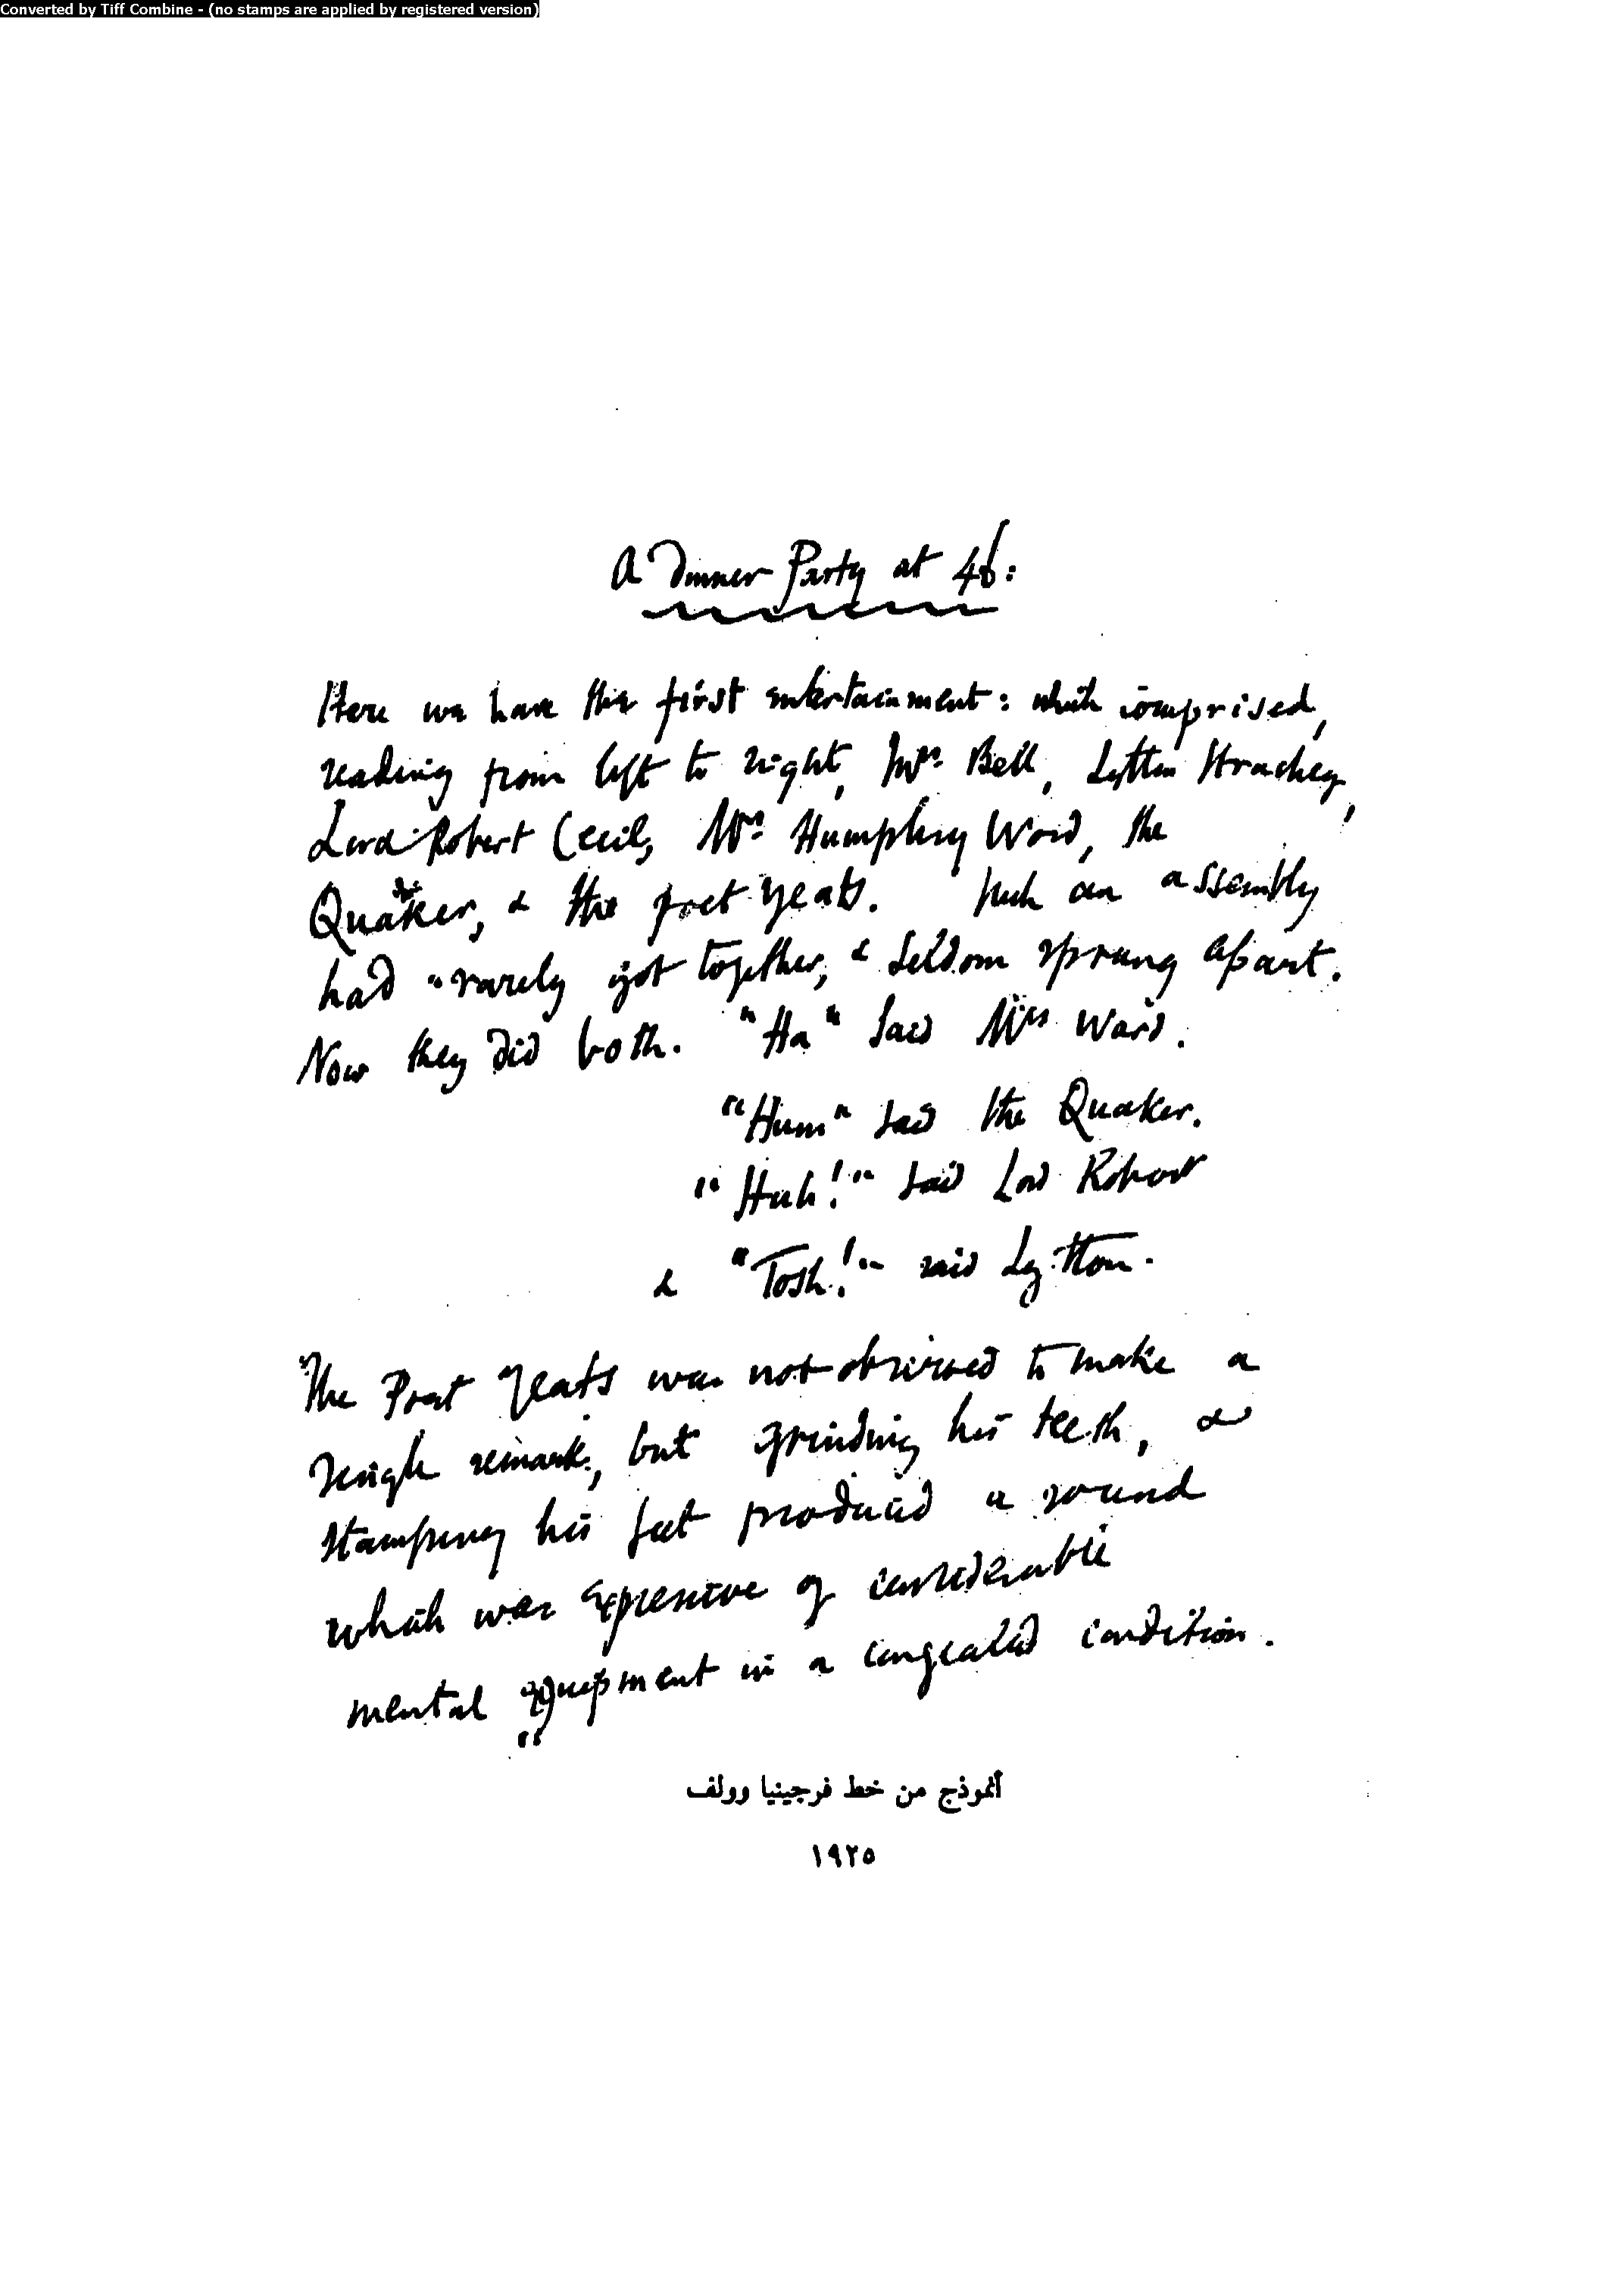 Converted by Tiff Combine - (no stamps are applied by registered version)
A Dinner Party at 46:
Here we have the first entertainment: which comprised,
reading from left to right, Mrs. Bell, Lytton Strachey,
Lord Robert Cecil, Mrs. Humphry Ward, the
Quaker, & the poet Yeats. Such an assembly
had rarely got together, & seldom sprung apart.
Now they did both. "Ha" said Mrs Ward.
"Hum" said the Quaker.
"Huh!" said Lord Robert
& "Tosh!" said Lytton.
The Poet Yeats was not observed to make a
single remark, but grinding his teeth, &
stamping his feet produced a sound
which was expressive of considerable
mental equipment in a congealed condition.
أنموذج من خط فرجينيا وولف
١٩٢٥